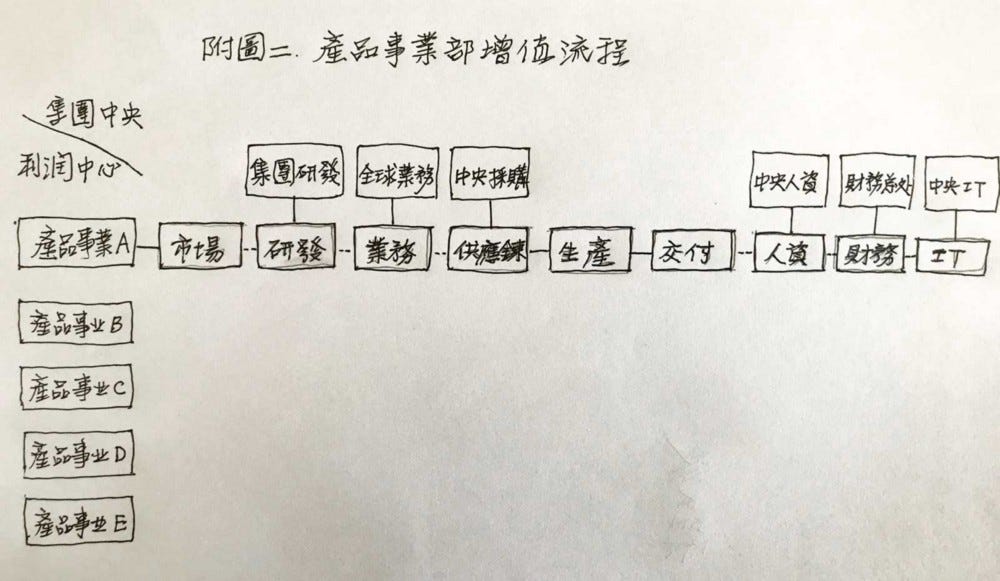 附圖二. 產品事業部增值流程
集團中央
利润中心
集團研發 全球業務 中央採購 中央人資 財務总处 中央IT
產品事業A 市場 研發 業務 供應鍊 生產 交付 人資 財務 IT
產品事业B
產品事业C
產品事业D
產品事业E